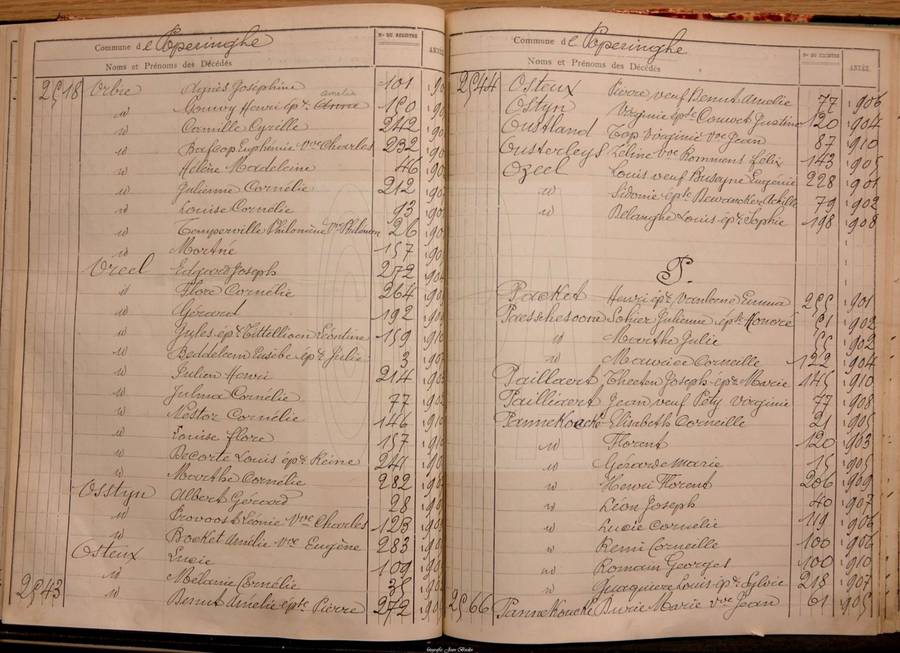 Commune de Poperinghe
N° DU REGISTRE
ANNÉE
Noms et Prénoms des Décédés
2518 Orbie Agnès Joséphine 101
Amelie
id Henri ép te 150
id Camille Cyrille 242
id Euphémie Vve Charles 232
id Hélène Madeleine 46
id Julienne Cornélie 212
id Louise Cornélie 93
id Temperville Philomène Vve Philemon 26
id Mortné 157
Oreel Edgard Joseph 272
id Flore Cornélie 264
id Gérard 192
id Jules ép x Léontine 159
id Eusèbe ép x Julie 3
id Julien Henri 214
id Julma Cornélie 77
id Nestor Cornélie 146
id Louise Flore 157
id Decorte Louis ép x Reine 241
id Marthe Cornélie 282
Osstyn Albert Gérard 28
id Provoost Léonie Vve Charles 123
id Bocket Amélie Vve Eugène 283
Osteux Lucie 109
id Mélanie Cornélie 35
2543 id Benut Amélie ép te Pierre 272
Commune de Poperinghe
N° DU REGISTRE
ANNÉE
Noms et Prénoms des Décédés
2544 Osteux Pierre veuf Benut Amélie 77 906
Ostyn Virginie ép te Couwet Justin 120 904
Oustland Top Virginie Vve Jean 87 910
Ousterleys Zéline Vve Rommens Félix 143 905
Ozeel Louis veuf Buseyne Eugénie 228 901
id Sidonie ép te Dewancker Achille 79 902
id Belanghe Louis ép x Sophie 198 908
P.
Packet Henri ép x Emma 255 901
Paesschesoone Sohier Julienne ép te Honoré 51 902
id Marthe Julie 55 902
id Maurice Corneille 122 904
Paillaert Theeten Joseph ép x Marie 145 910
Pailliaert Jean veuf Pety Virginie 77 908
Pannekoucke Elisabeth Corneille 21 905
id Florent 120 903
id Gérard Marie 15 905
id Henri Florent 206 909
id Léon Joseph 40 907
id Lucie Cornélie 119 906
id Remi Corneille 100 906
id Romain Georges 100 910
id Quaquiere Louis ép x Sylvie 218 907
2566 Pannekoucke Burie Marie Vve Jean 61 905